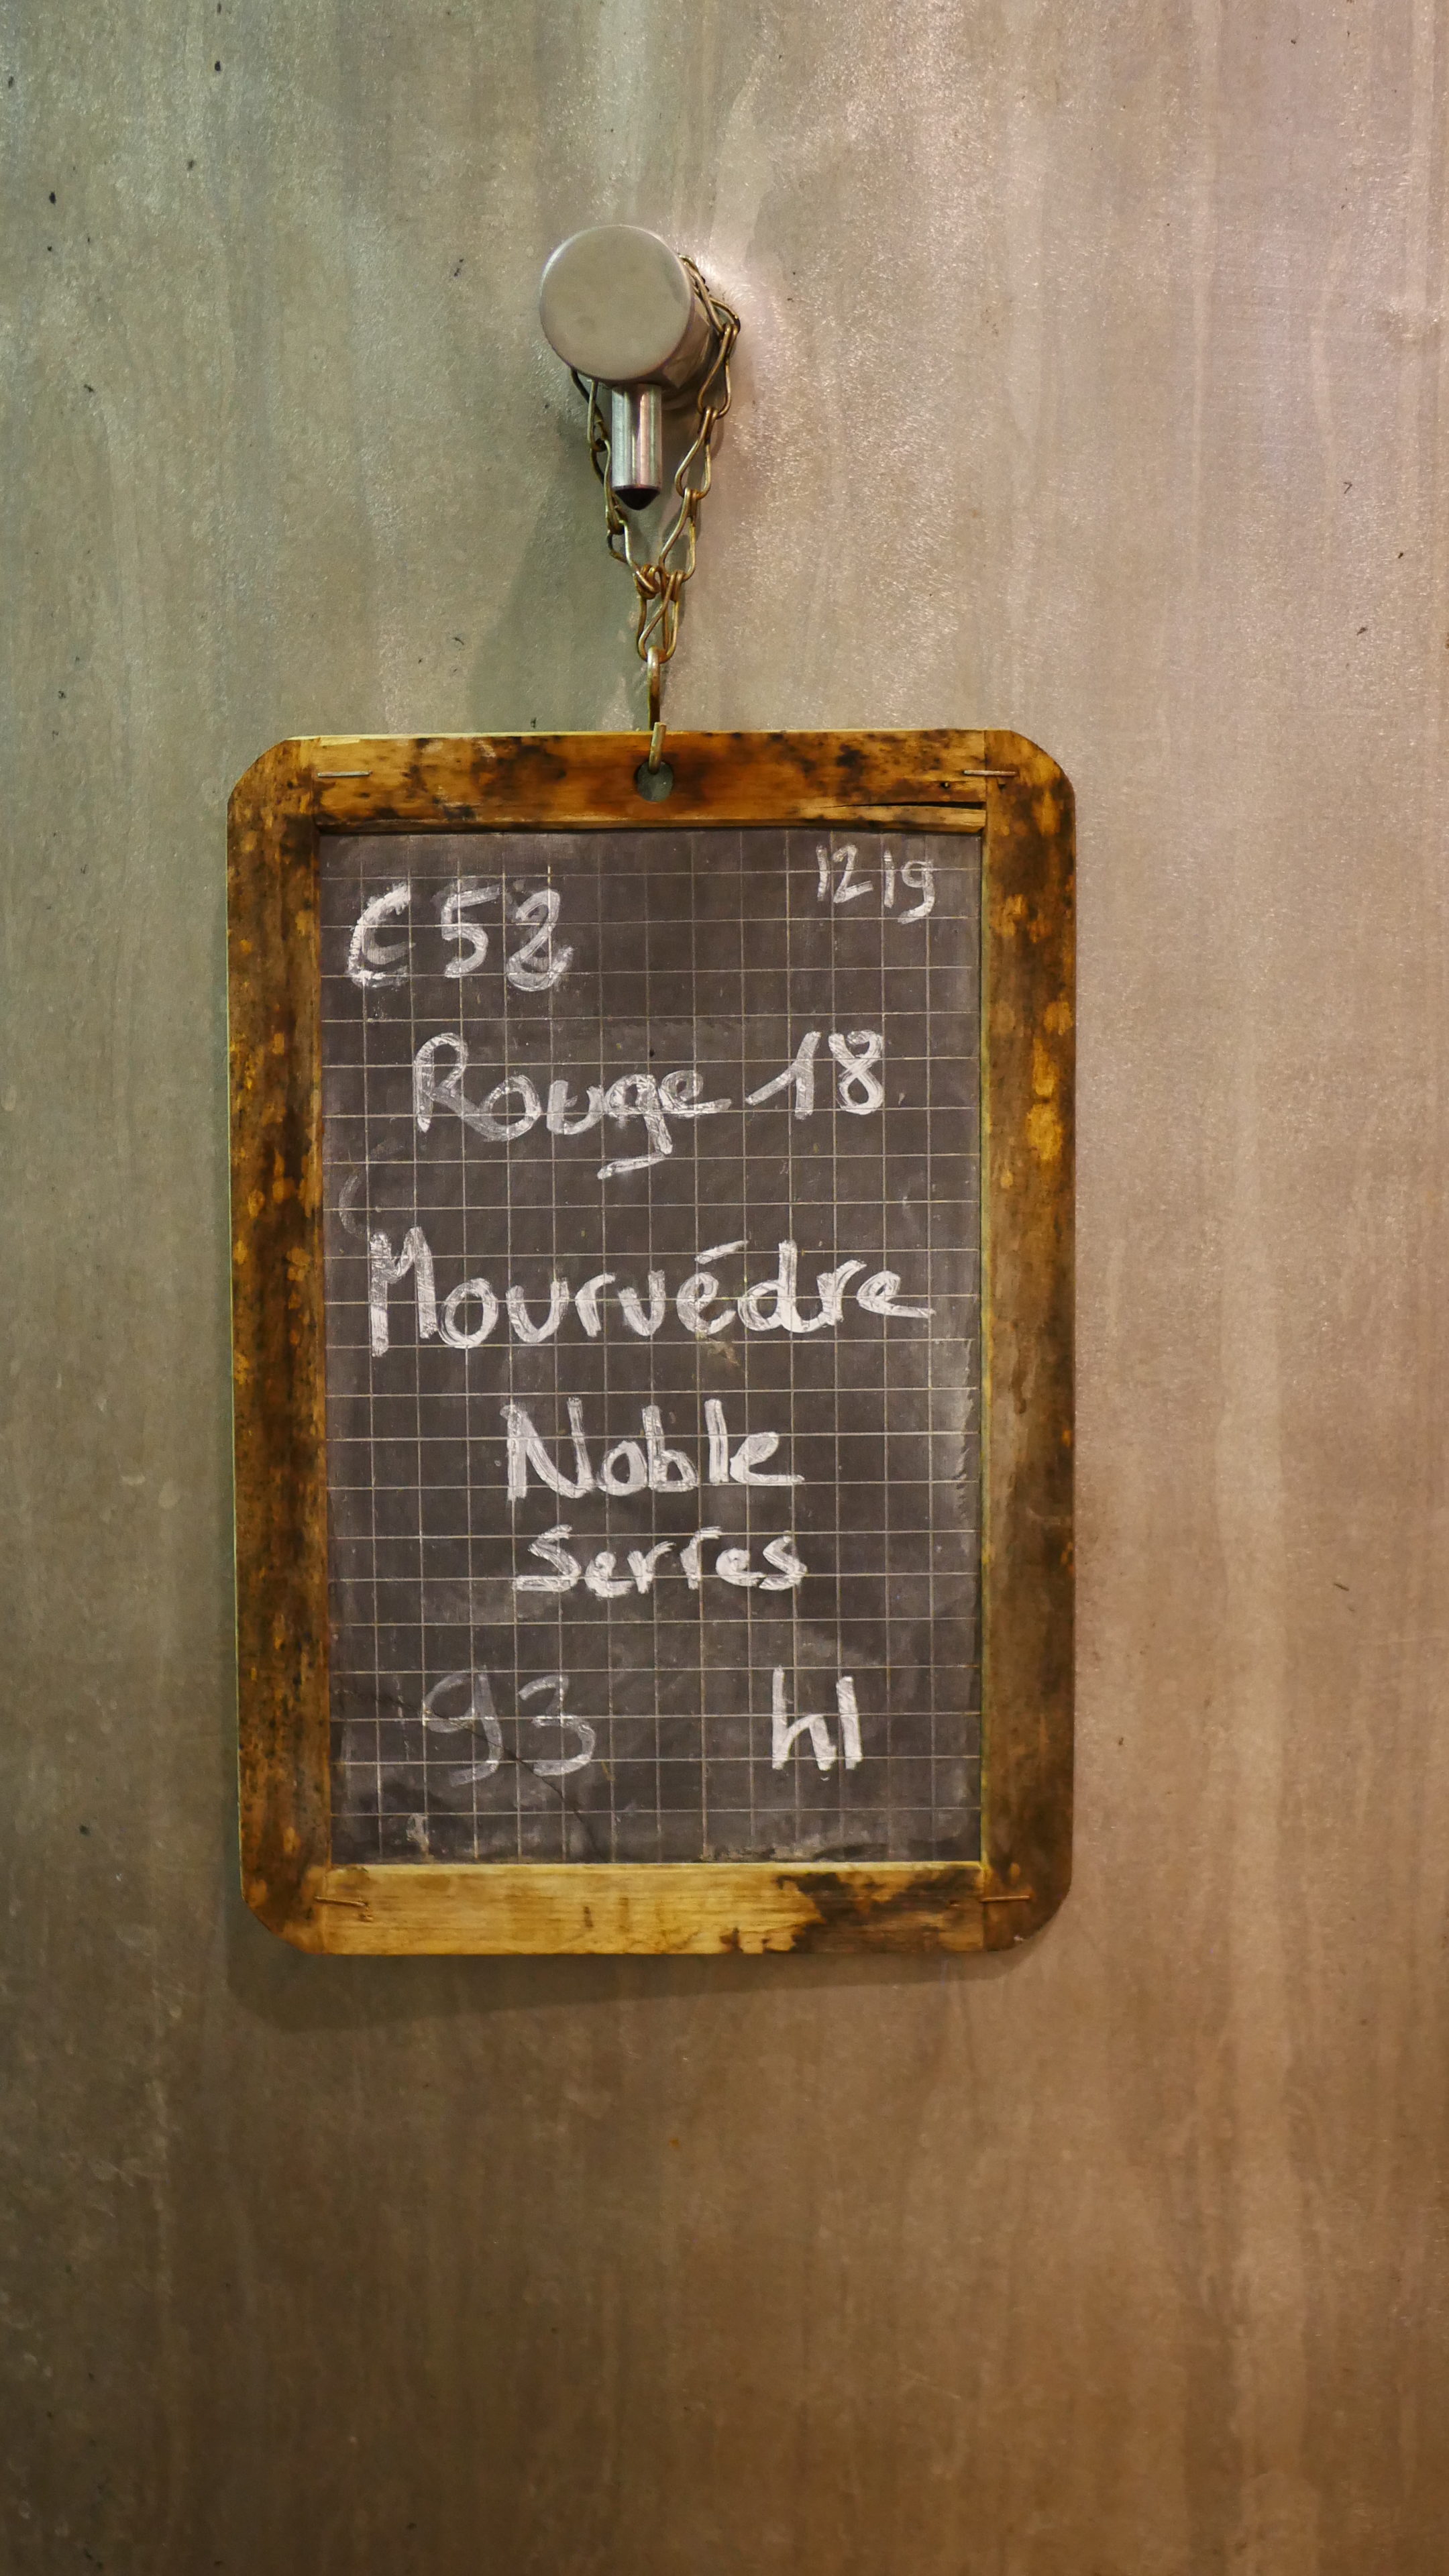 C52
1219
Rouge 18
Mourvédre
Noble
Serres
93 hl